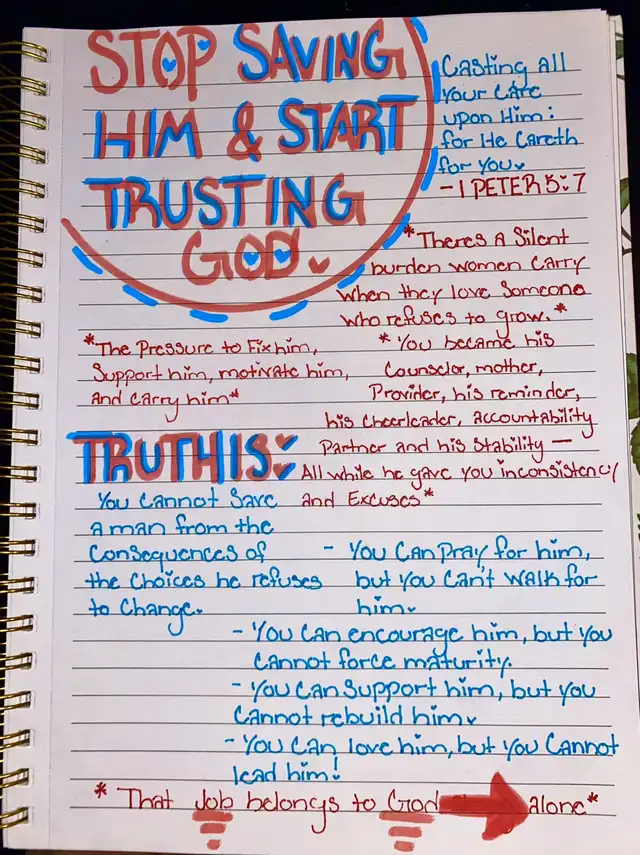 STOP SAVING
HIM & START
TRUSTING
GOD.
Casting all
Your Care
upon Him:
for He Careth
for You.
- 1 PETER 5:7
*There's A Silent
burden women carry
when they love someone
who refuses to grow.*
*The Pressure to Fix him,
Support him, motivate him,
and Carry him*
*You became his
Counselor, mother,
Provider, his reminder,
his Cheerleader, accountability
Partner and his Stability —
All while he gave you inconsistency
and Excuses*
TRUTH IS:
You Cannot Save
a man from the
Consequences of
the Choices he refuses
to Change.
- You Can Pray for him,
but you Can't Walk for
him.
- You Can encourage him, but you
cannot force maturity.
- You Can Support him, but you
Cannot rebuild him.
- You Can love him, but you Cannot
lead him!
*That Job belongs to God alone*